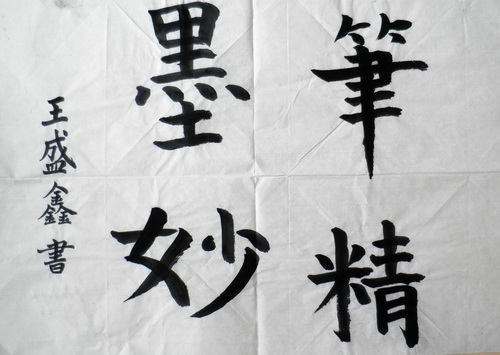 筆精
墨妙
王盛鑫書